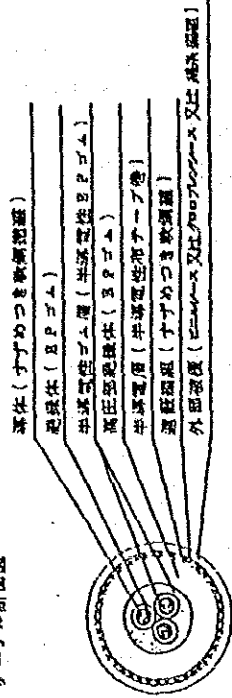 ケーブル断面図
導体(すずめつき軟銅線)
絶縁体(EPゴム)
半導電性ゴム層(半導電性EPゴム)
高圧部絶縁体(EPゴム)
半導電層(半導電性布テープ巻)
遮蔽編組(すずめつき軟銅線)
外部被覆(ビニルシース又はクロロプレンシース又は